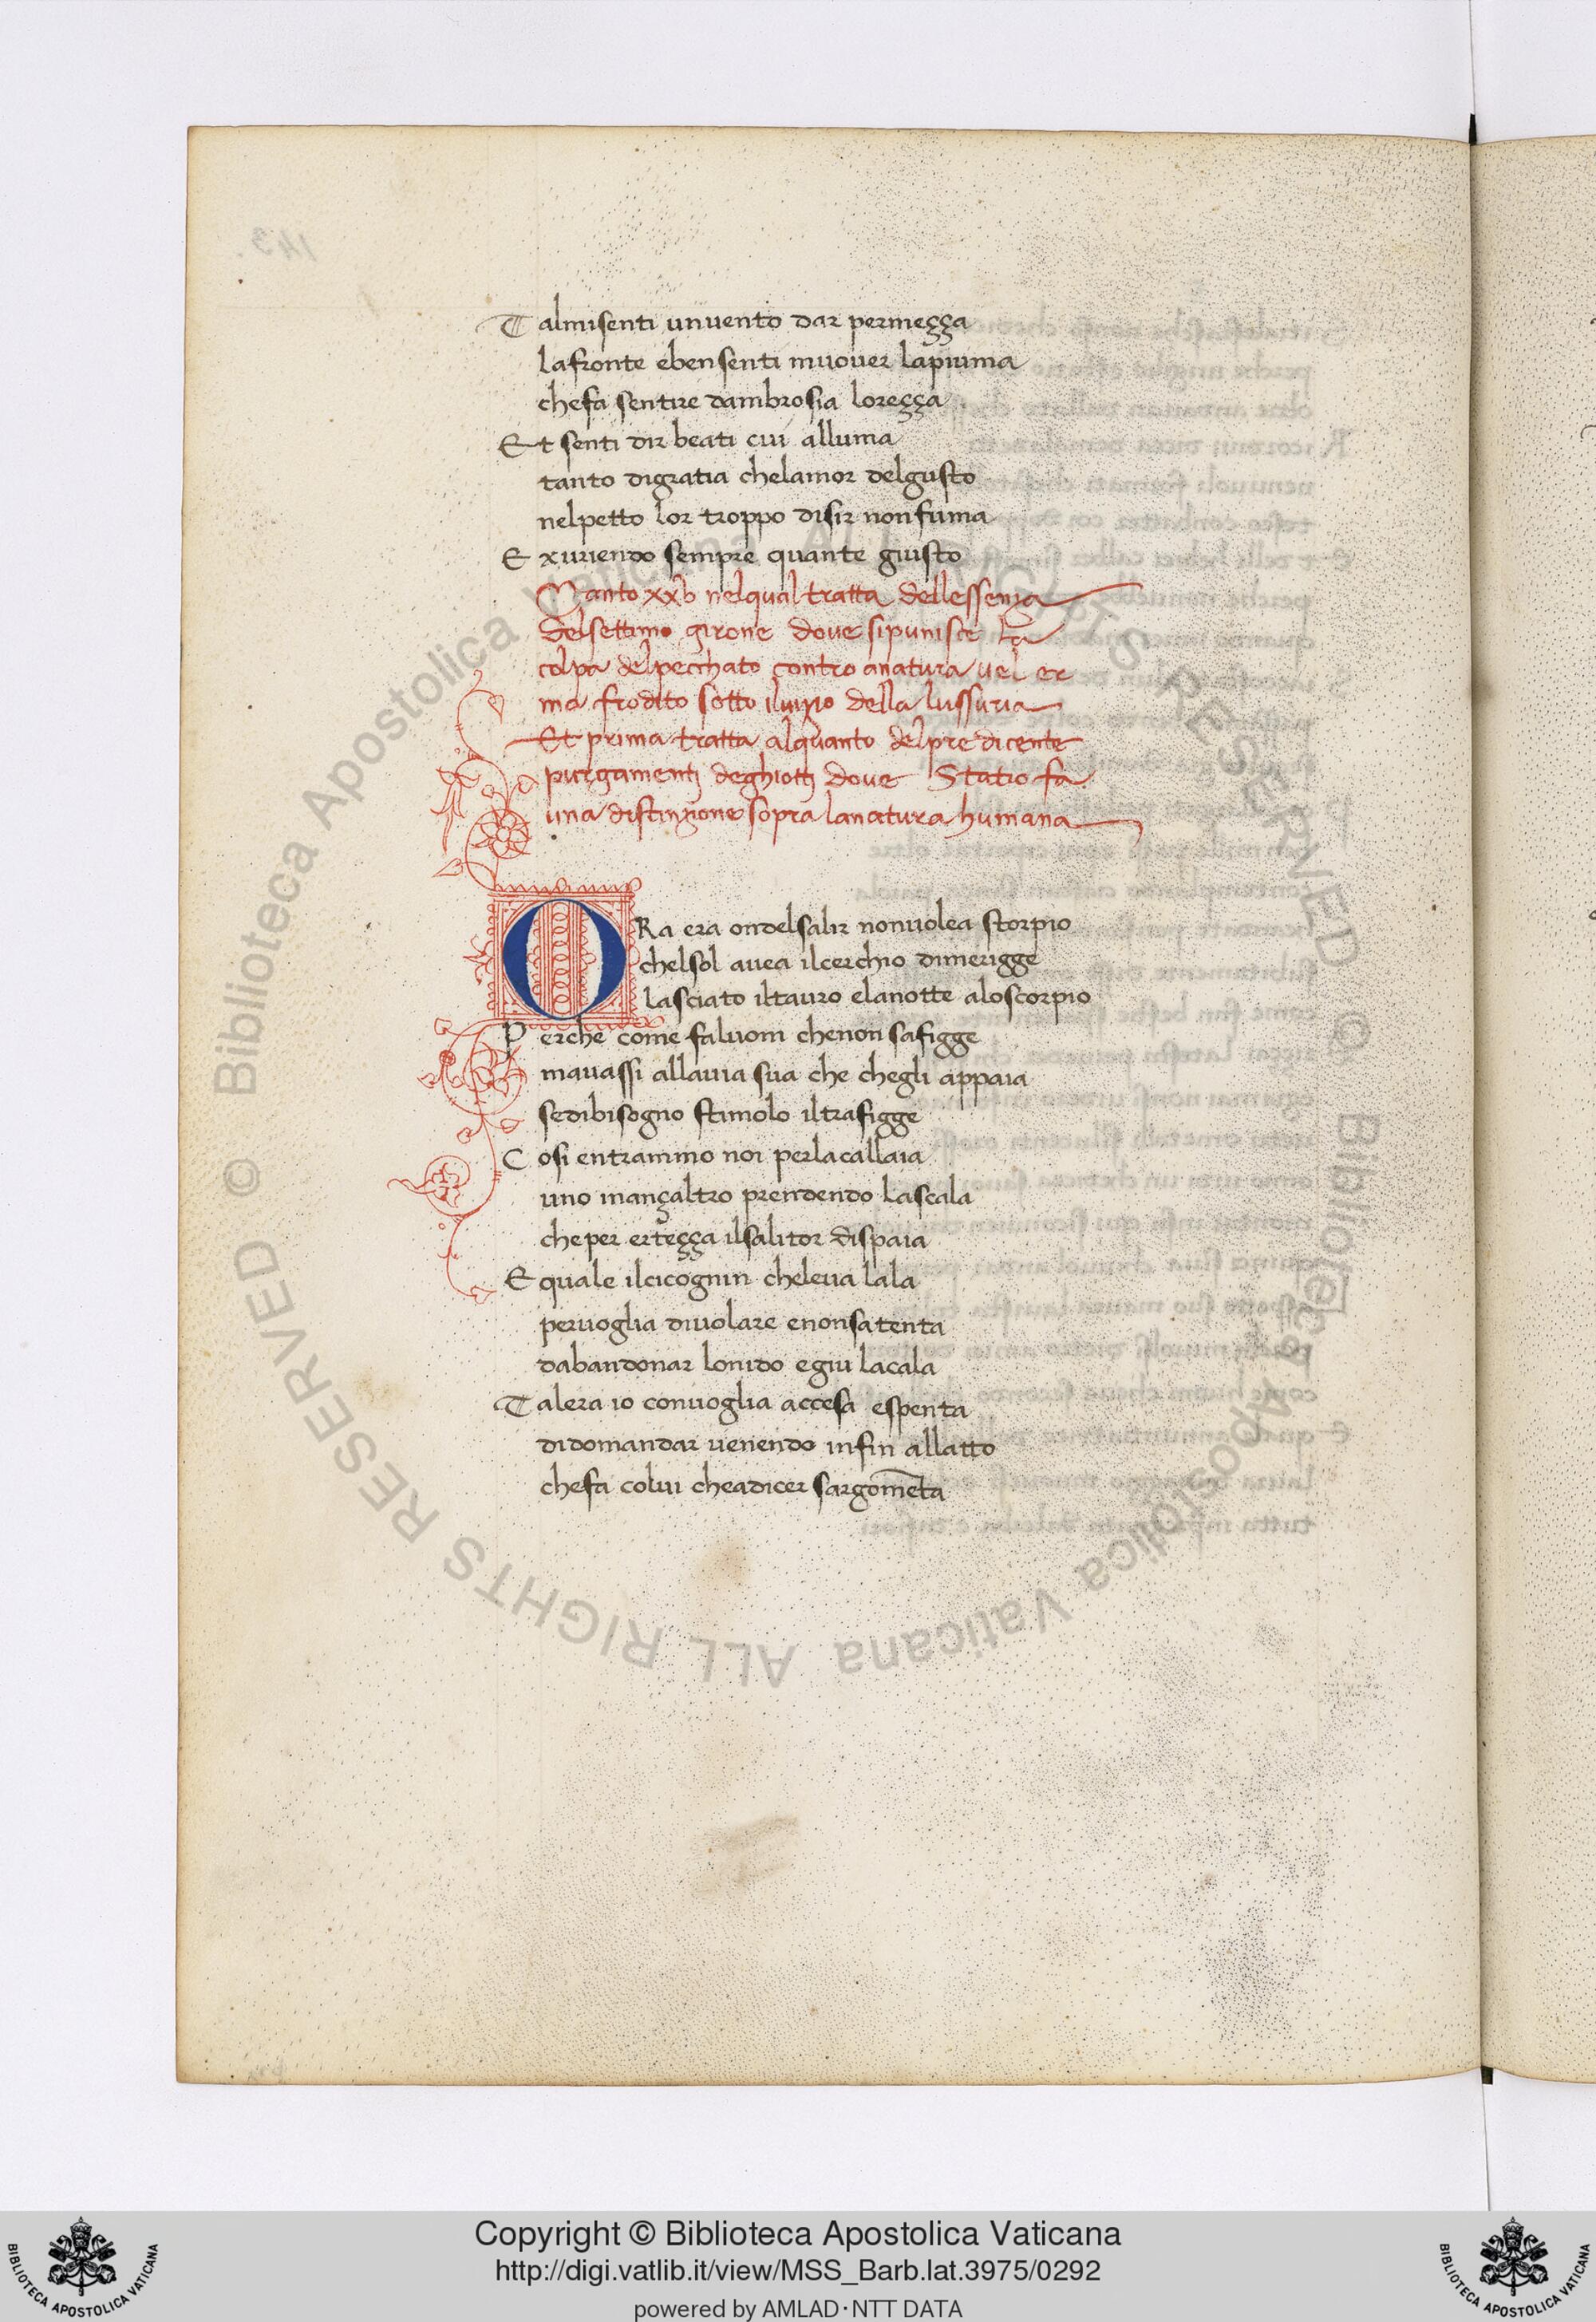 143.
T almisenti unuento dar permeçça
lafronte ebensenti muouer lapiuma
chefa sentire dambrosia loreçça
Et senti dir beati cui alluma
tanto digratia chelamor delgusto
nelpetto lor troppo disir nonfuma
E xuriendo sempre quante giusto
Canto xxv nelqual tratta dellessenza
delsettimo girone dove sipunisce la
colpa delpecchato contro anatura vel er
ma frodito sotto iluizio della lussuria
Et prima tratta alquanto delpre dicente
purgamentj deghiottj dove Statio fa
una distinzione sopra lanatura humana
ORa era ondelsalir nonuolea storpio
chelsol auea ilcerchio dimerigge
lasciato iltauro elanotte aloscorpio
P erche come faluom chenon safigge
mauassi allauia sua che chegli appaia
sedibisogno stimolo iltrafigge
C osi entrammo noi perlacallaia
uno inançaltro prendendo lascala
cheper erteçça ilsalitor dispaia
E quale ilcicognin cheleua lala
peruoglia diuolare enonsatenta
dabandonar lonido egiu lacala
T alera io conuoglia accesa espenta
didomandar uenendo infin allatto
chefa colui cheadicer sargom̅eta
© Biblioteca Apostolica Vaticana ALL RIGHTS RESERVED © Biblioteca Apostolica Vaticana ALL RIGHTS RESERVED
Copyright © Biblioteca Apostolica Vaticana
http://digi.vatlib.it/view/MSS_Barb.lat.3975/0292
powered by AMLAD·NTT DATA
BIBLIOTECA APOSTOLICA VATICANA
BIBLIOTECA APOSTOLICA VATICANA